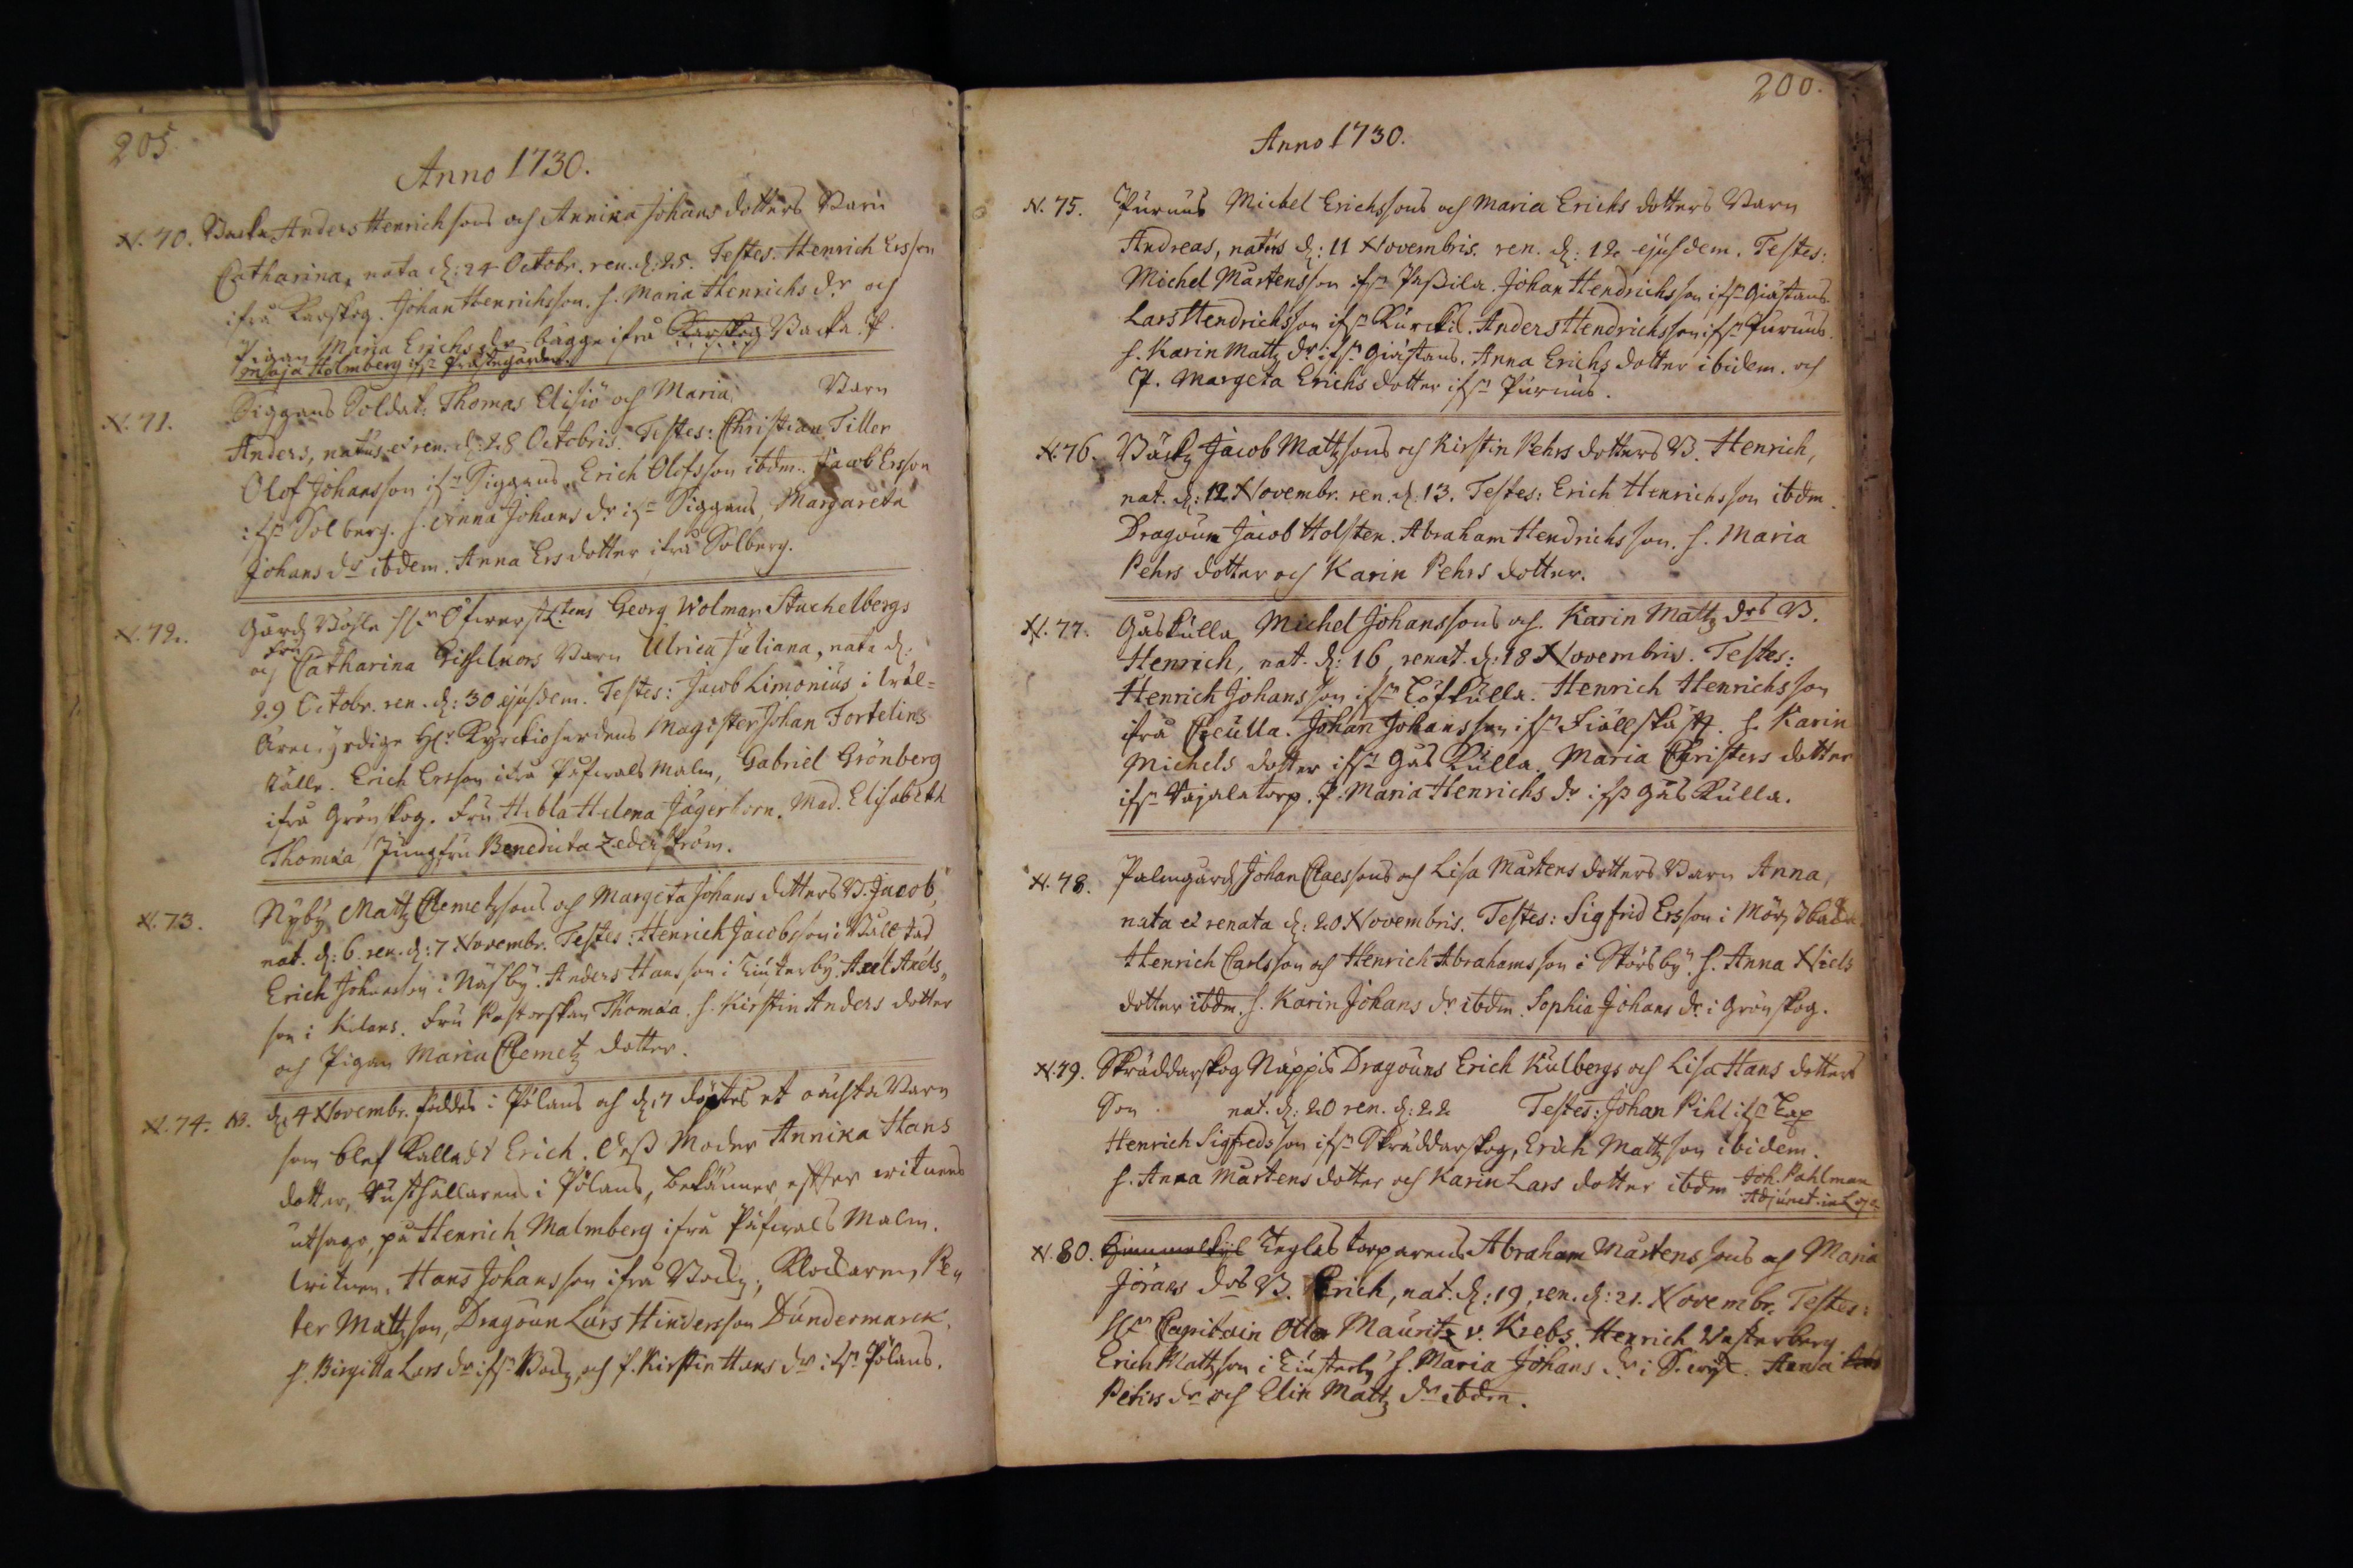 205.
Anno 1730.
N. 70. Backa Anders Henrichsons och Annika Johans dotters Barn
Catharina, nata d: 24 Octobr. ren. d: 25. Testes. Henrich Ersson
ifrå Karskog. Johan Henrichsson. h. Maria Henrichs dr och
Pigan Maria Erichs dr bägge ifrå Karskog Backa. P.
Maja Holmberg ifrn Prästegården.
N. 71. Siggans Soldat: Thomas Elisiö och Maria Barn
Anders, natus et ren. d: 28 Octobris. Testes: Christian Tiller
Olof Johansson ifrn Siggans, Erich Olofsson ibdm. Jacob Ersson
ifrn Solberg. h. Anna Johans dr ifrn Siggans, Margareta
Johans dr ibdem. Anna Ers dotter ifrå Solberg.
N. 72. Gårds Böhle Hrn Öfwerst Ltens Georg Wolmar Stachelbergs
Fru
och Catharina Gisselkors Barn Ulrica Juliana, nata d.
29 Octobr. ren. d: 30 ejusdem. Testes: Jacob Limonius, i
Ärewyrdige Hr Kyrckioherdens Magister Johan Fortelius
ställe. Erich Ersson ifrå Påfwals Malm, Gabriel Grönberg
ifrå Grönskog. Fru Hebla Helena Jägerhorn. Mad. Elisabeth
Thomæa Jungfru Benedicta Zederström.
N. 73. Nyby Matz Clemetzsons och Margeta Johans dotters B. Jacob,
nat. d: 6. ren. d: 7 Novembr. Testes: Henrich Jacobsson i Bällstad
Erich Johansson i Näsby. Anders Hansson i Linterby. Axel Axels-
son i Kilans. Fru Pastorskan Thomæa. h. Kirstin Anders dotter
och Pigan Maria Clemetz dotter.
N. 74. NB. d. 4 Novembr. föddes i Pölans och d. 7 döptes et oächta Barn
som blef Kalladt Erich. Deß Moder Annika Hans
dotter, Rusthållarens i Pölans, bekänner efter witnens
utsago, på Henrich Malmberg ifrå Påfwals Malm.
Witnen, Hans Johansson ifrå Böle, Klockaren, Pe-
ter Mattzson, Dragoun Lars Hindersson Dundermarck.
h. Birgitta Lars dr ifrn och h. Kirstin Hans dr ifrn Pölans.
200.
Anno 1730.
N. 75. Purnus Michel Erichssons och Maria Erichs dotters Barn
Andreas, natus d: 11 Novembris. ren. d: 12 ejusdem. Testes:
Michel Mårtensson ifrn Paßila. Johan Hendrichsson ifrn Giästans
Lars Hendrichsson ifrn Anders Hendrichsson ifrn Purnus.
h. Karin Mattz dr ifrn Giästans. Anna Erichs dotter ibidem. och
P. Margeta Erichs dotter ifrn Purnus.
N. 76. Bäcks Jacob Mattzsons och Kirstin Pehrs dotters B. Henrich,
nat. d: 12 Novembr. ren. d: 13. Testes: Erich Henrichsson ibdm.
Dragoun Jacob Holsten. Abraham Hendrichsson. h. Maria
Pehrs dotter och Karin Pehrs dotter.
N. 77. Gåskulla Michel Johanssons och Karin Mattz drs B.
Henrich, nat. d: 16, renat. d: 18 Novembris. Testes:
Henrich Johansson ifrn Löfkulla. Henrich Henrichsson
ifrå Johan Johansson ifrn Fiällskäft. h. Karin
Michels dotter ifrn Gås Kulla. Maria Christers dotter
ifrn Vajalatorp. P. Maria Henrichs dr ifrn Gås Kulla.
N. 78. Palmgårds Johan Claessons och Lisa Mårtens dotters Barn Anna,
nata et renata d: 20 Novembris. Testes: Sigfrid Ersson i
Henrich Carlsson och Henrich Abrahamsson i Störsby. h. Anna Niels
dotter ibdm. h. Karin Johans dr ibdm. Sophia Johans dr i Grönskog.
N. 79. Skräddarskog Näppis Dragouns Erich Kulbergs och Lisa Hans dotters
Son nat. d: 20 ren. d: 22 Testes: Johan Pihl ifrn
Henrich Sigfredsson ifrn Skräddarskog, Erich Mattzson ibidem.
h. Anna Mårtens dotter och Karin Lars dotter ibdm Joh. Pahlman
Adjunct. in Lojo
N. 80. Teglastorparens Abraham Mårtenssons och Maria
Jörans drs B. Erich, nat. d: 19, ren. d: 21. Novembr. Testes:
Hr Capitain Otto Mauritz v. Krebs. Henrich Westerberg
Erich Mattzson i Linterby h. Maria Johans dr i Anna
Pehrs dr och Elin Mattz dr ibdm.